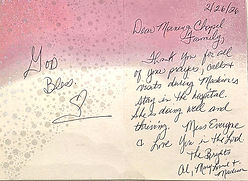 God
Bless
2/26/26
Dear Marina Chapel
Family,
Thank You for all
of your prayers, calls &
visits during Madison's
stay in the hospital.
She is doing well and
thriving. Miss Everyone
& Love You in the Lord
The
Al, Mary Lynne &
Madison